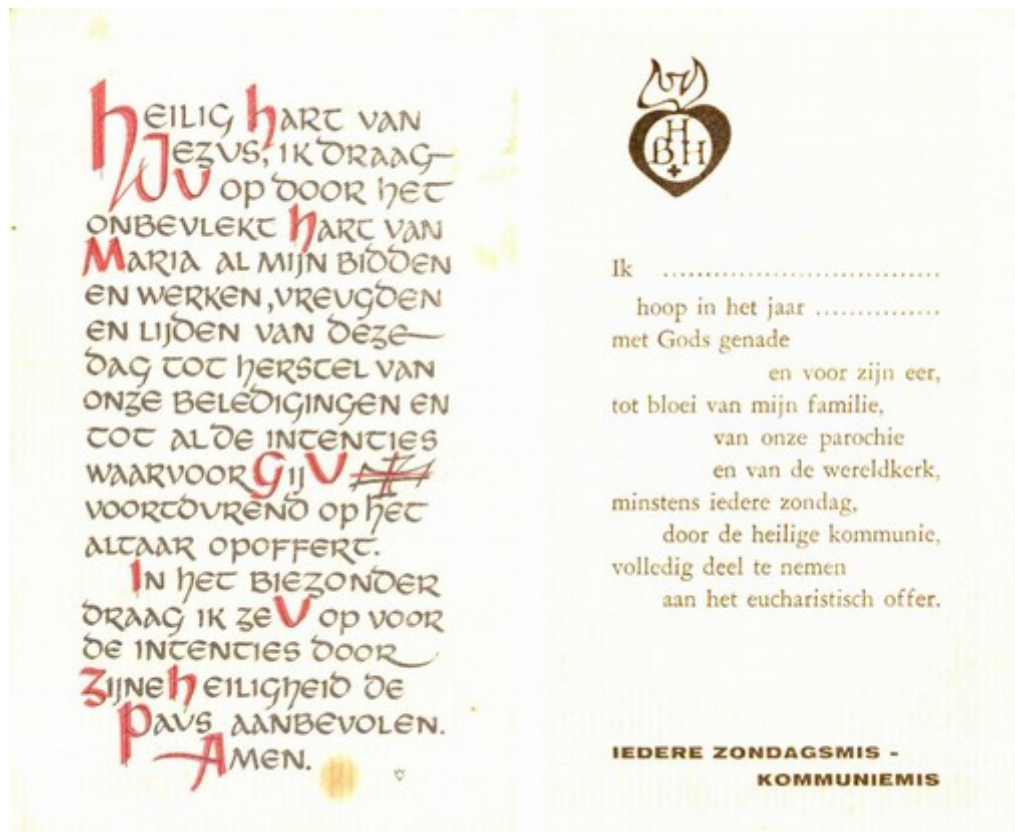 HEILIG HART VAN
JEZUS, IK DRAAG
U OP DOOR HET
ONBEVLEKT HART VAN
MARIA AL MIJN BIDDEN
EN WERKEN, VREUGDEN
EN LIJDEN VAN DEZE
DAG TOT HERSTEL VAN
ONZE BELEDIGINGEN EN
TOT AL DE INTENTIES
WAARVOOR GIJ U
VOORTDUREND OP HET
ALTAAR OPOFFERT.
IN HET BIEZONDER
DRAAG IK ZE U OP VOOR
DE INTENTIES DOOR
ZIJNE HEILIGHEID DE
PAUS AANBEVOLEN.
AMEN.
H
B H
Ik ................................
hoop in het jaar ...............
met Gods genade
en voor zijn eer,
tot bloei van mijn familie,
van onze parochie
en van de wereldkerk,
minstens iedere zondag,
door de heilige kommunie,
volledig deel te nemen
aan het eucharistisch offer.
IEDERE ZONDAGSMIS -
KOMMUNIEMIS